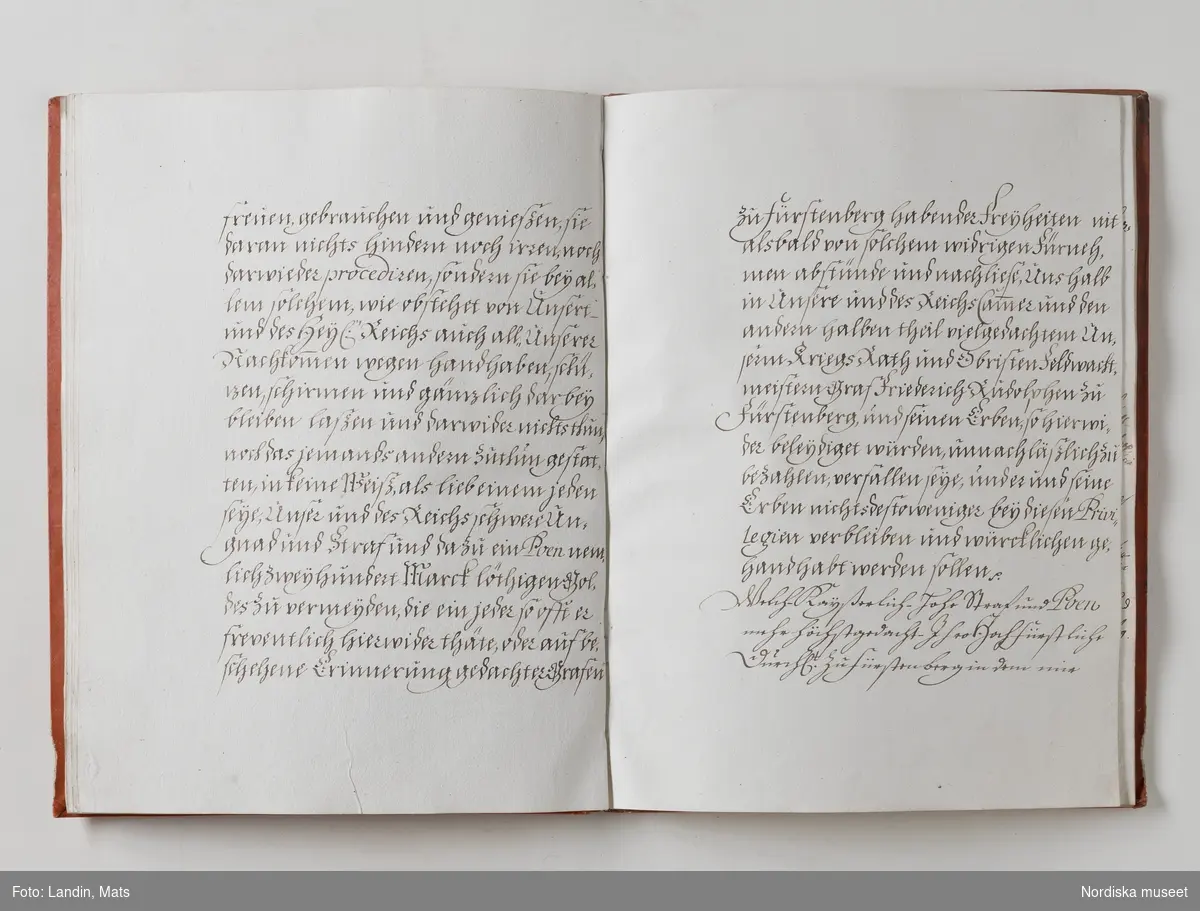 freuen, gebrauchen und genießen, sie
daran nichts hindern noch irren, noch
darwieder procediren, sondern sie bey al,
lem solchem, wie obstehet von Unsert-
und des Heyl. Reichs auch all, Unserer
Nachkom̅en wegen handhaben, schü,
zen, schirmen und gänzlich darbey
bleiben laßen und darwider nichts thun,
noch das jemands andern zuthun gestat,
ten, in keine Weiß, als lieb einem jeden
seye, Unser und des Reichs schwere Un,
gnad und Straf und dazu ein Poen nem,
lich zweyhundert Marck löthigen Gol,
des zu vermeyden, die ein jeder so offt er
freventlich hierwider thäte, oder auf be,
schehene Erinnerung gedachter Grafen
zu Fürstenberg habender Freyheiten nit
alsbald von solchem widrigen Fürneh,
men abstünde und nachliese, Uns halb
in Unsere und des Reichs Cam̅er und den
andern halben theil vielgedachtem Un,
serm Kriegs Rath und Obristen Feldwacht,
meistern Graf Friederich Rudolphen zu
Fürstenberg, und seinen Erben, so hierwi,
der beleydiget würden, unnachläßlich zu
bezahlen, verfallen seye, und er und seine
Erben nichtsdestoweniger bey diesen Privi,
legien verbleiben und würcklichen ge,
handhabt werden sollen.
Welch Kayßerlich- Hohe Straf und Poen
mehr höchstgedacht- Ihro Hochfürstliche
Durchlt. zu Fürstenberg in dem mir
Foto: Landin, Mats
Nordiska museet